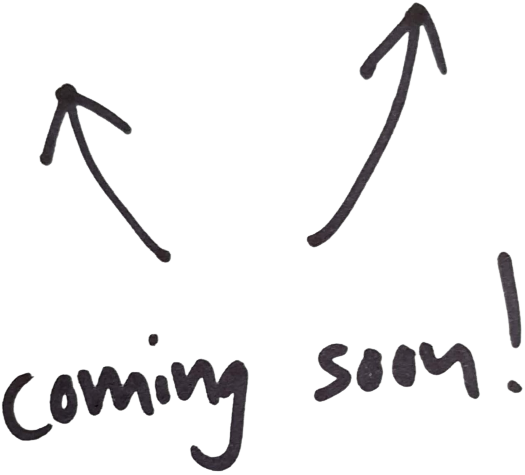 coming soon!